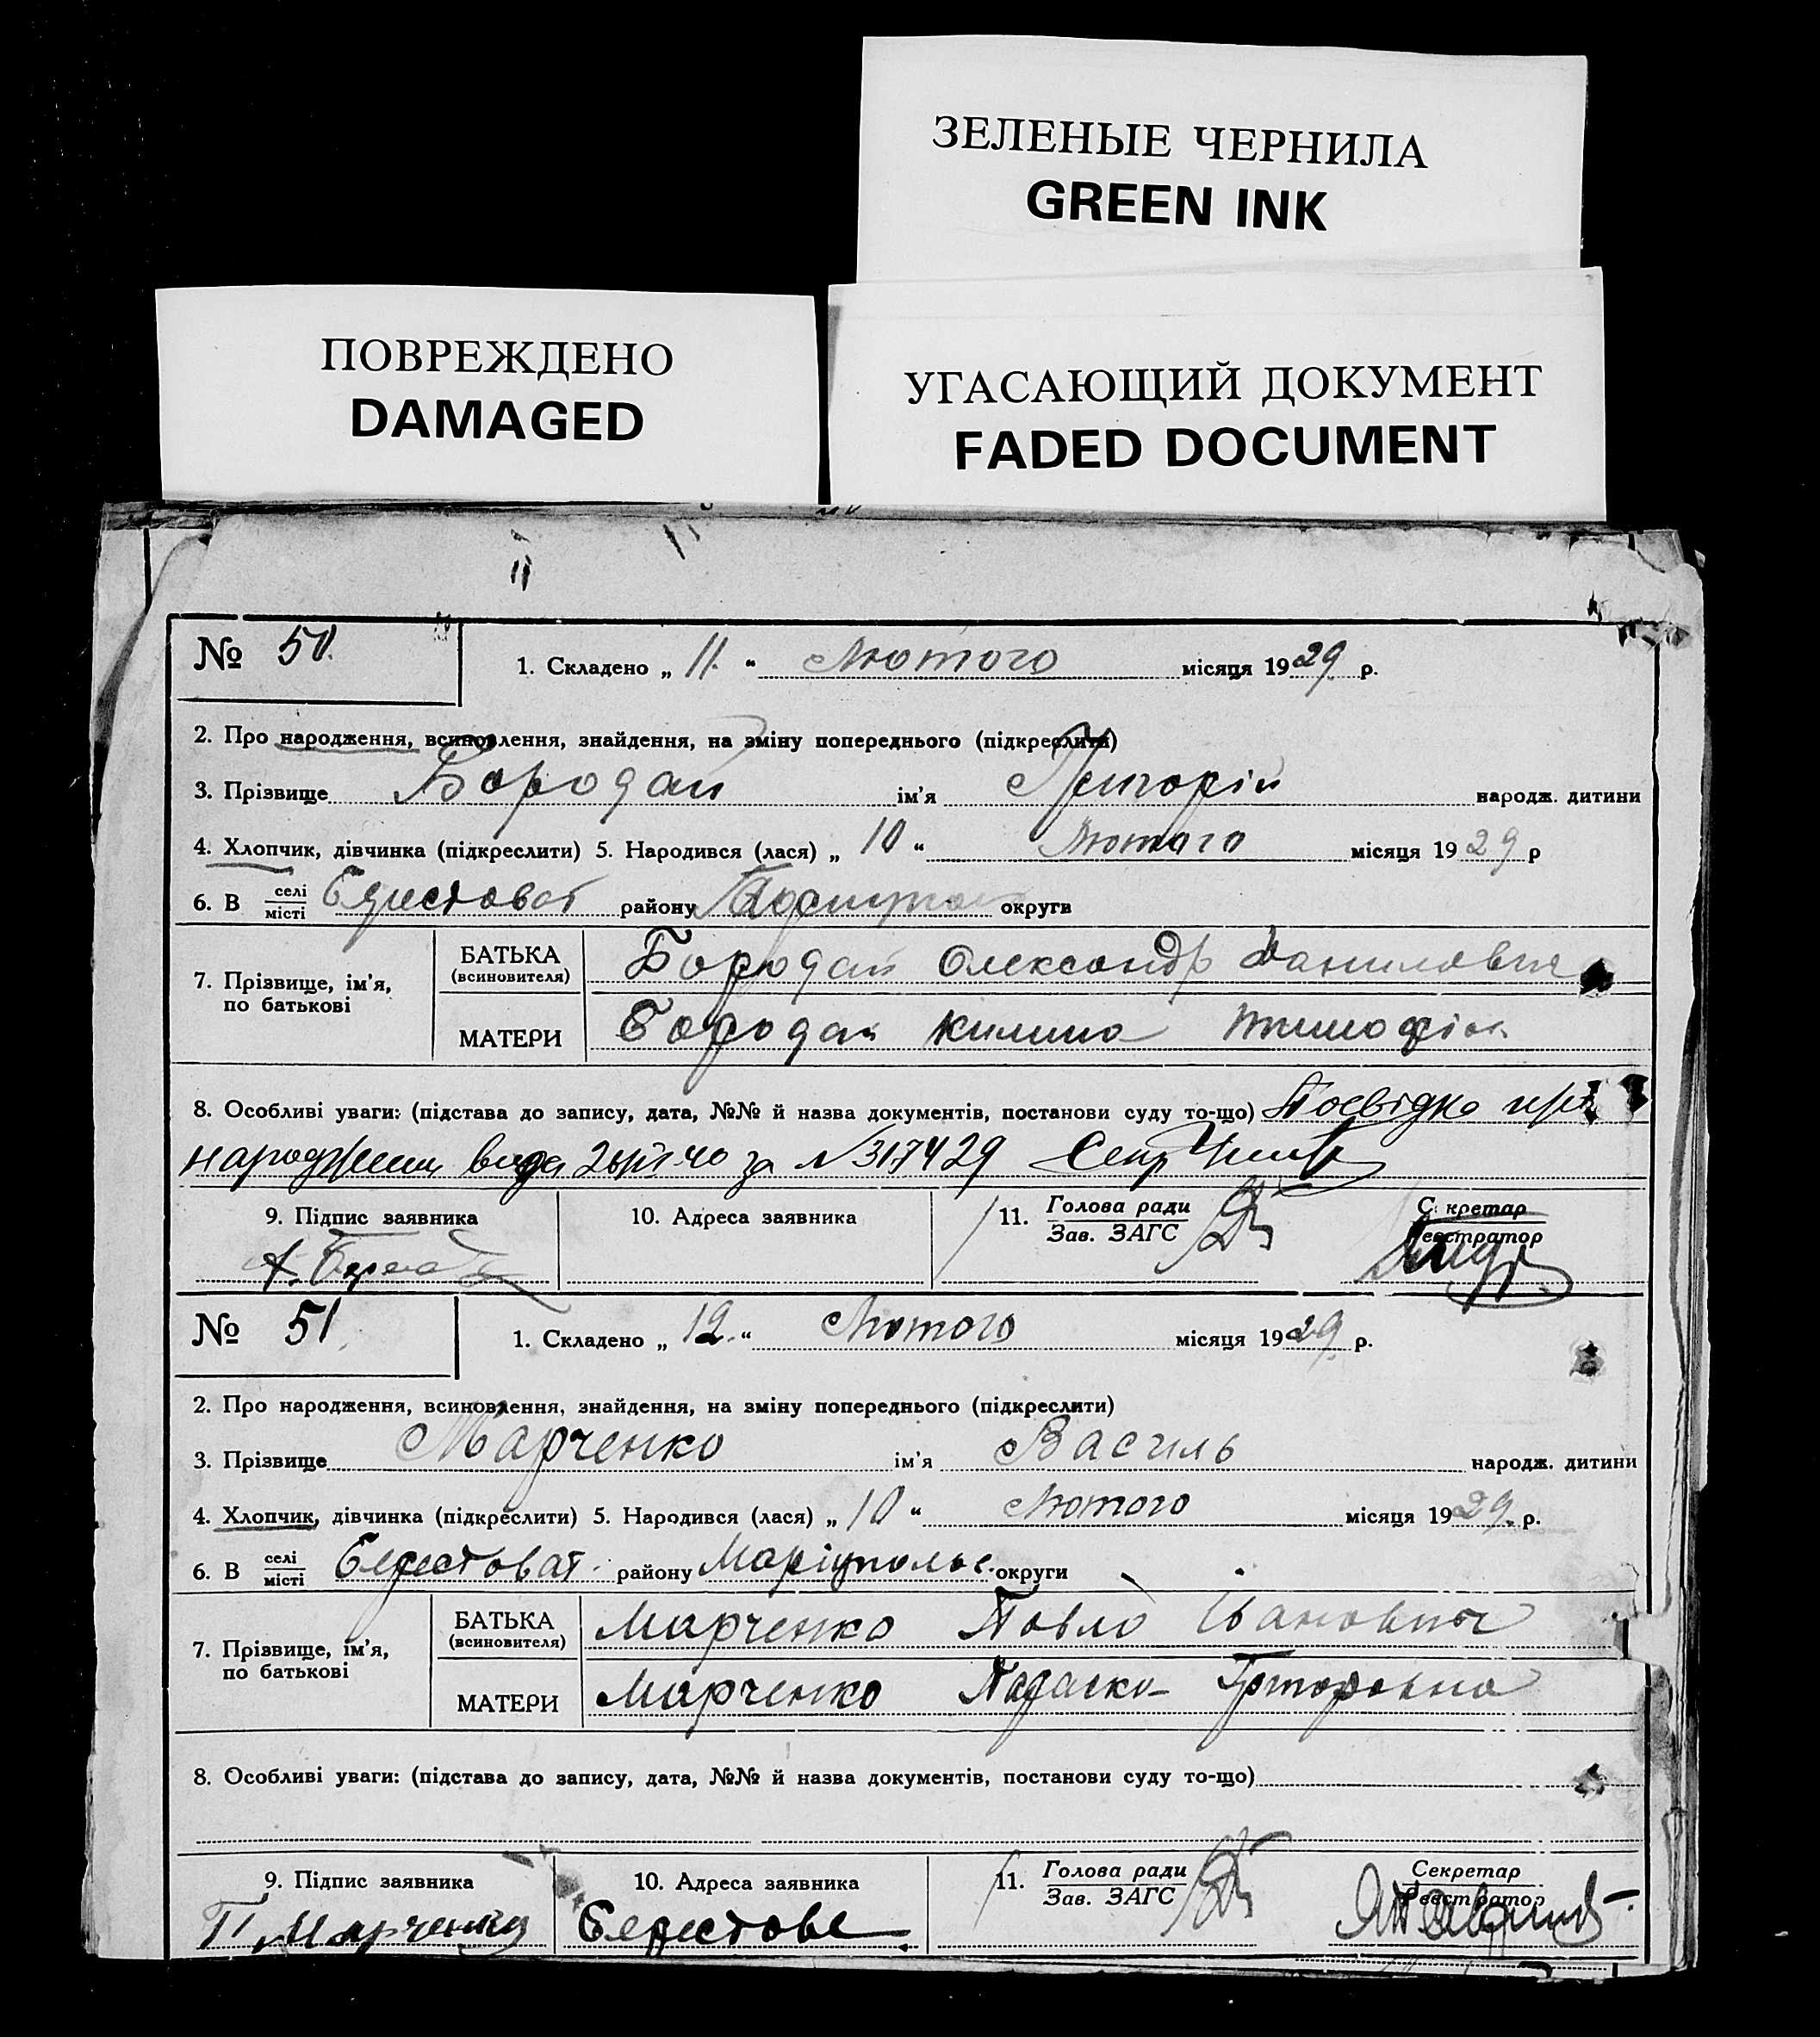 ЗЕЛЕНЫЕ ЧЕРНИЛА
GREEN INK
ПОВРЕЖДЕНО
DAMAGED
УГАСАЮЩИЙ ДОКУМЕНТ
FADED DOCUMENT
№ 50. 1. Складено „ 11. “ Лютого місяця 1929 р.
2. Про народження, всиновлення, знайдення, на зміну попереднього (підкреслити)
3. Прізвище Бородай ім'я Григорій народж. дитини
4. Хлопчик, дівчинка (підкреслити) 5. Народився (лася) „ 10 “ Лютого місяця 1929 р
6. В селі місті Берестоват району округи
7. Прізвище, ім'я, по батькові
БАТЬКА (всиновителя) Бородай Олександр Данилович
МАТЕРИ Бородай Килина
8. Особливі уваги: (підстава до запису, дата, №№ й назва документів, постанови суду то-що) Посвідка про
народження за № Секр
9. Підпис заявника 10. Адреса заявника 11. Голова ради Зав. ЗАГС Секретар Реєстратор
А.
№ 51. 1. Складено „ 12. “ Лютого місяця 1929 р.
2. Про народження, всиновлення, знайдення, на зміну попереднього (підкреслити)
3. Прізвище Марченко ім'я Василь народж. дитини
4. Хлопчик, дівчинка (підкреслити) 5. Народився (лася) „ 10 “ Лютого місяця 1929 р.
6. В селі місті Берестоват. району Маріупольс. округи
7. Прізвище, ім'я, по батькові
БАТЬКА (всиновителя) Марченко Павло Іванович
МАТЕРИ Марченко Параска Григоровна
8. Особливі уваги: (підстава до запису, дата, №№ й назва документів, постанови суду то-що)
9. Підпис заявника 10. Адреса заявника 11. Голова ради Зав. ЗАГС Секретар Реєстратор
П. Марченко Берестове